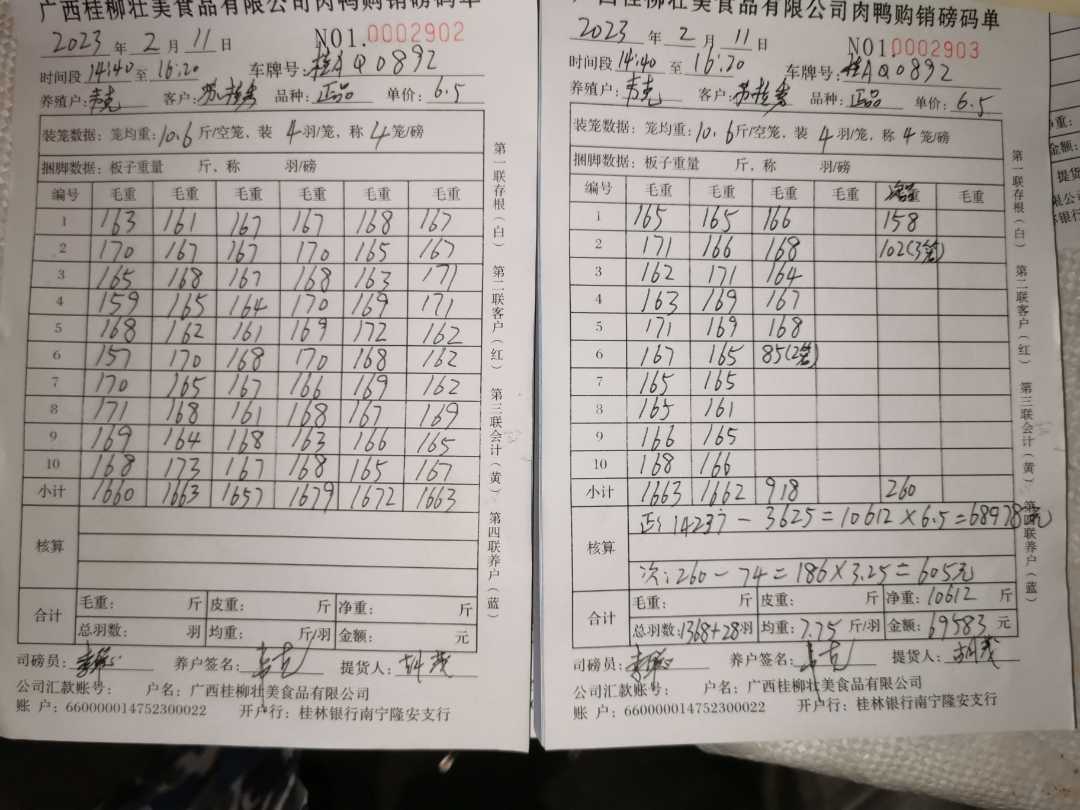 广西桂柳壮美食品有限公司肉鸭购销磅码单
2023 年 2 月 11 日 NO1.0002902
时间段 14:40 至 16:20 车牌号: 桂AQ0892
养殖户: 韦克 客户: 苏桂秀 品种: 正品 单价: 6.5
装笼数据: 笼均重: 10.6 斤/空笼, 装 4 羽/笼, 称 4 笼/磅
捆脚数据: 板子重量 斤, 称 羽/磅
编号 毛重 毛重 毛重 毛重 毛重 毛重
1 163 161 167 167 168 167
2 170 167 167 170 165 167
3 165 168 167 168 163 171
4 159 165 164 170 169 171
5 168 162 161 169 172 162
6 157 170 168 170 168 162
7 170 165 167 166 169 162
8 171 168 161 168 167 169
9 169 164 168 163 166 165
10 168 173 167 168 165 167
小计 1660 1663 1657 1679 1672 1663
核算
合计 毛重: 斤 皮重: 斤 净重: 斤
总羽数: 羽 均重: 斤/羽 金额: 元
司磅员: 养户签名: 韦克 提货人: 胡茂
公司汇款账号: 户名: 广西桂柳壮美食品有限公司
账 户: 660000014752300022 开户行: 桂林银行南宁隆安支行
第一联存根(白) 第二联客户(红) 第三联会计(黄) 第四联养户(蓝)
广西桂柳壮美食品有限公司肉鸭购销磅码单
2023 年 2 月 11 日 NO1.0002903
时间段 14:40 至 16:20 车牌号: 桂AQ0892
养殖户: 韦克 客户: 苏桂秀 品种: 正品 单价: 6.5
装笼数据: 笼均重: 10.6 斤/空笼, 装 4 羽/笼, 称 4 笼/磅
捆脚数据: 板子重量 斤, 称 羽/磅
编号 毛重 毛重 毛重 毛重 毛重
1 165 165 166 158
2 171 166 168 102(3笼)
3 162 171 164
4 163 169 167
5 171 169 168
6 167 165 85(2笼)
7 165 165
8 165 161
9 166 165
10 168 166
小计 1663 1662 918 260
核算 正: 14237－3625＝10612×6.5＝68978元
次: 260－74＝186×3.25＝605元
合计 毛重: 斤 皮重: 斤 净重: 10612 斤
总羽数: 1368+28 羽 均重: 7.75 斤/羽 金额: 69583 元
司磅员: 养户签名: 韦克 提货人: 胡茂
公司汇款账号: 户名: 广西桂柳壮美食品有限公司
账 户: 660000014752300022 开户行: 桂林银行南宁隆安支行
第一联存根(白) 第二联客户(红) 第三联会计(黄) 第四联养户(蓝)